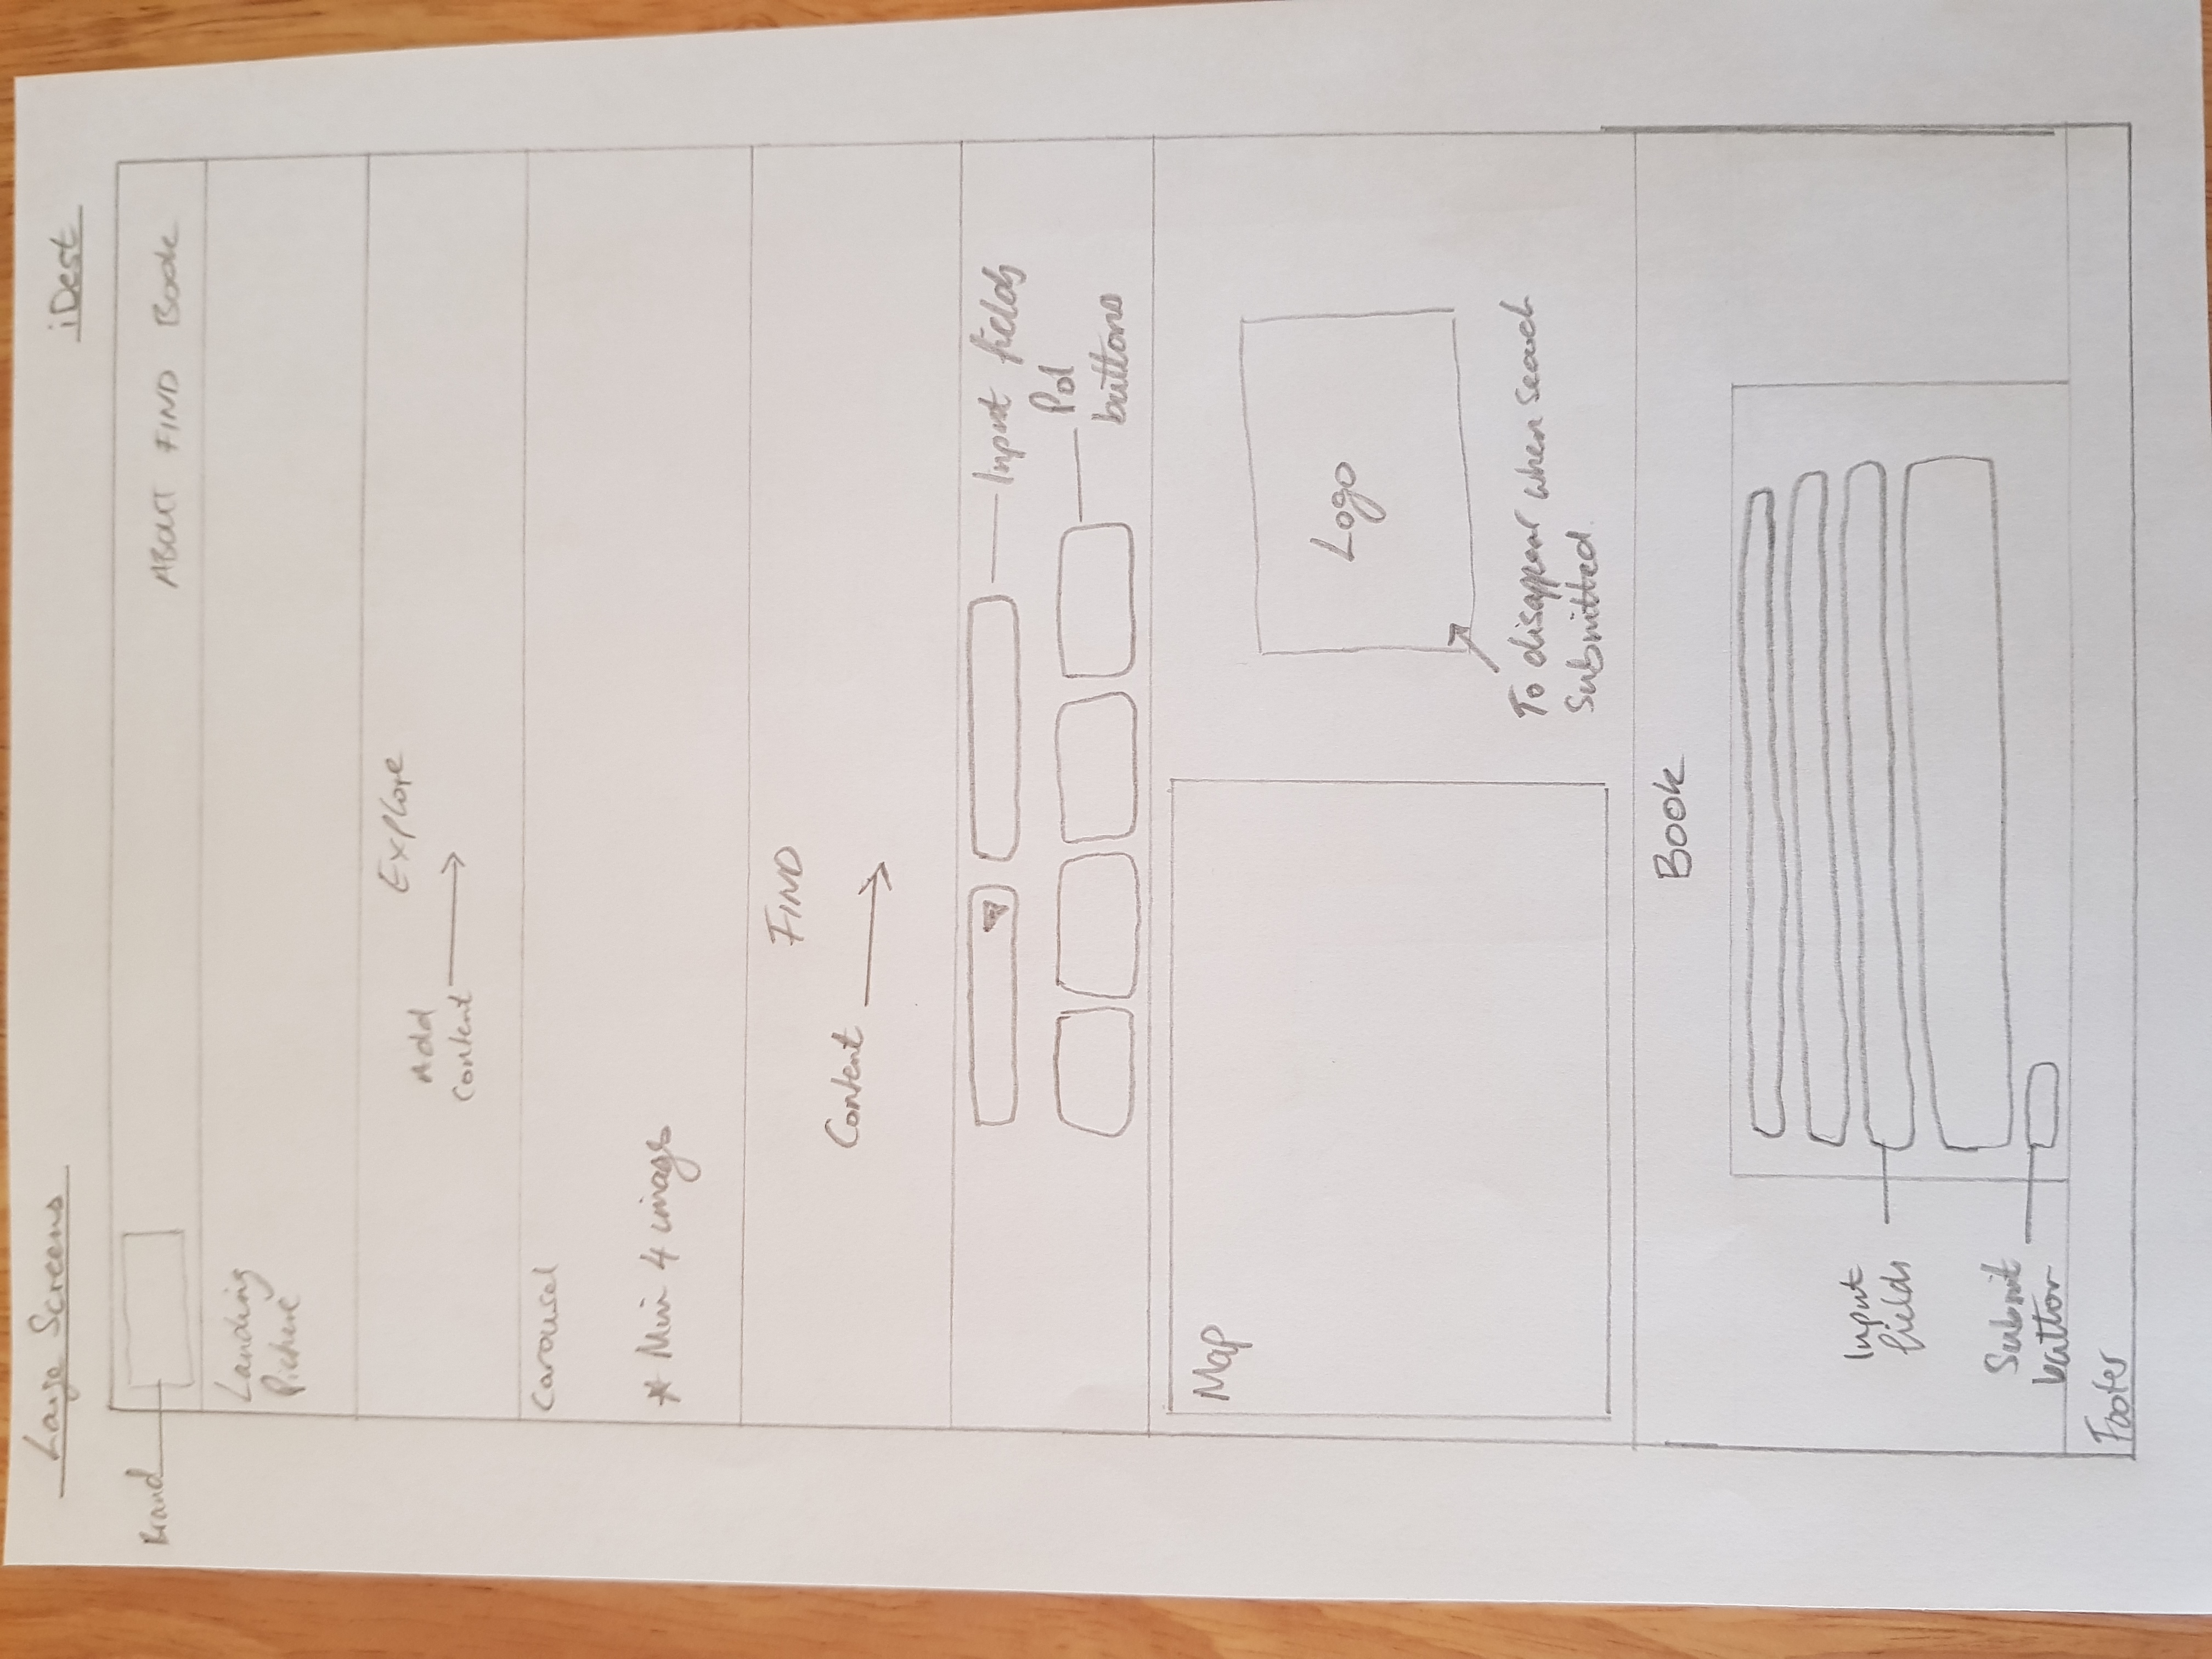 Large Screens
iDest
Brand
ABOUT FIND Book
Landing
Picture
Explore
Add
Content
Carousel
* Min 4 images
FIND
Content
Input fields
PoI
buttons
Map
Logo
To disappear when search
Submitted.
Book
Input
fields
Submit
button
Footer